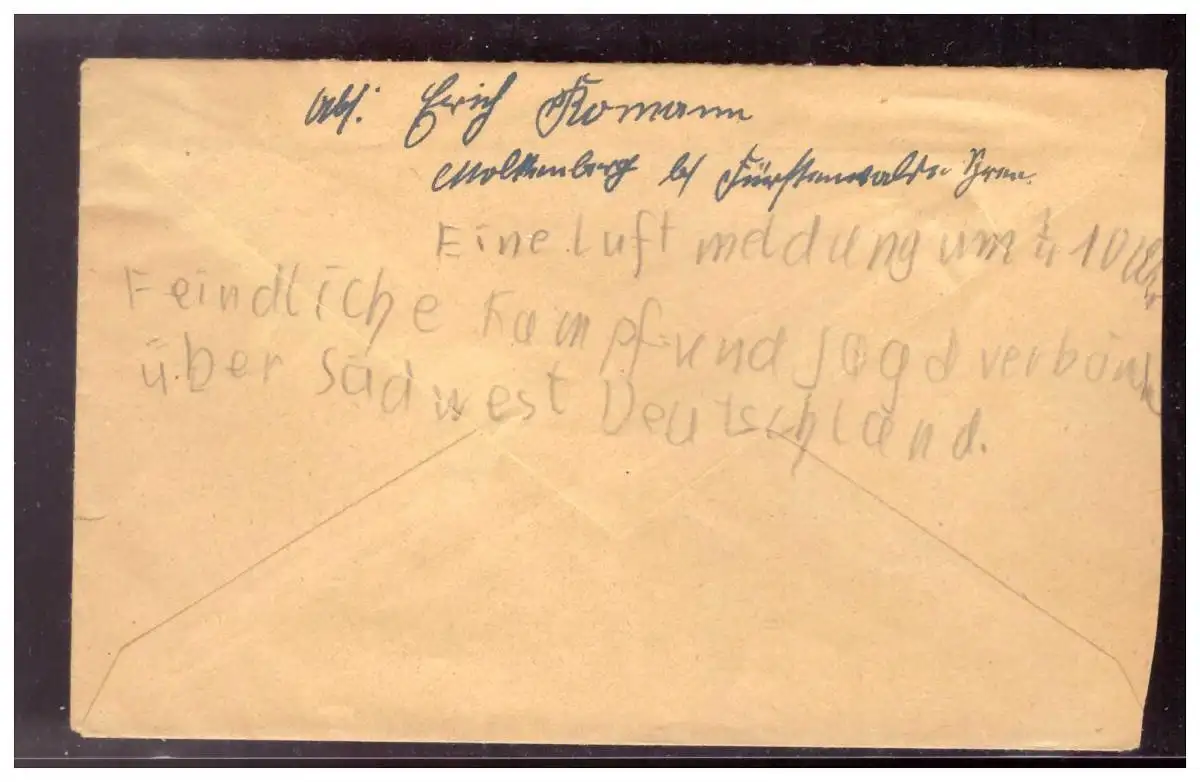 Abs: Erich Komann
Molkenberg b/ Fürstenwalde Spree.
Eine Luft meldung um 1/4 10 Uhr
Feindliche Kampf und Jagd verbände
über Südwest Deutschland.